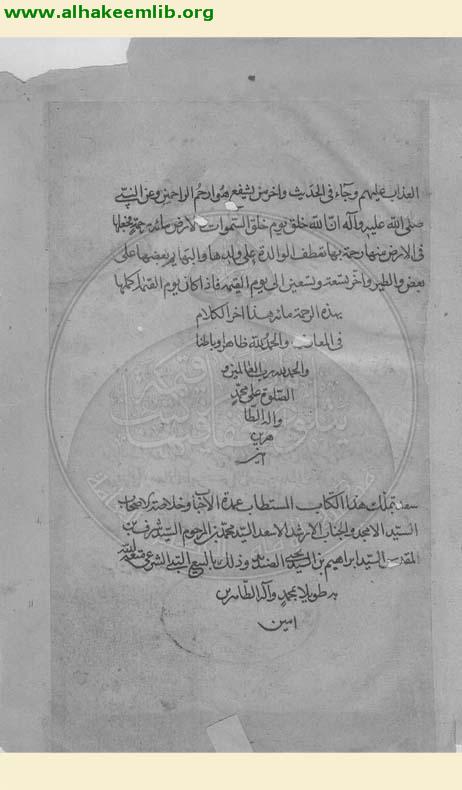 www.alhakeemlib.org
العذاب عليهم وجاء في الحديث واخر من يشفع هو ارحم الراحمين وعن النبي
صلى الله عليه وآله ان الله خلق يوم خلق السموات والارض مائة رحمة فجعل
في الارض منها رحمة بها تعطف الوالدة على ولدها والبهايم بعضها على
بعض والطير واخر تسعة وتسعين الى يوم القيمة فاذا كان يوم القيمة اكملها
بهذه الرحمة مائة هذا اخر الكلام
في المعاد والحمد لله ظاهرا وباطنا
والحمد لله رب العالمين و
الصلوة على محمد
واله الطا
هرين
امين
تملك هذا الكتاب المستطاب عمدة وخلاصة
السيد الامجد والجناب الارشد الاسعد السيد محمد بن المرحوم السيد شرف بن
المقدس السيد ابراهيم بن السيد يحيى وذلك بالبيع الشرعي
طويلا بمحمد وآله الطاهرين
امين